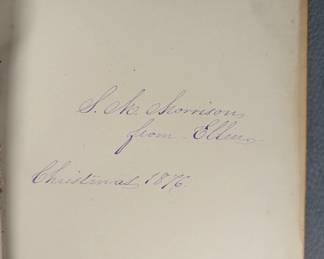 S. M. Morrison
from Ellen
Christmas 1876.